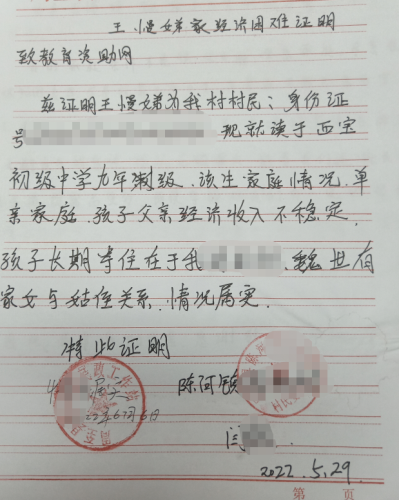 王慢娣家经济困难证明
致教育资助网
兹证明王慢娣为我村村民；身份证
号 现就读于西宝
初级中学九年制级．该生家庭情况．单
亲家庭．孩子父亲经济收入不稳定．
孩子长期寄住在于我 ．魏世有
家女与姑侄关系．情况属实．
特此证明
属实
陈河镇
22年6月6日
闫
2022.5.29.
第 页